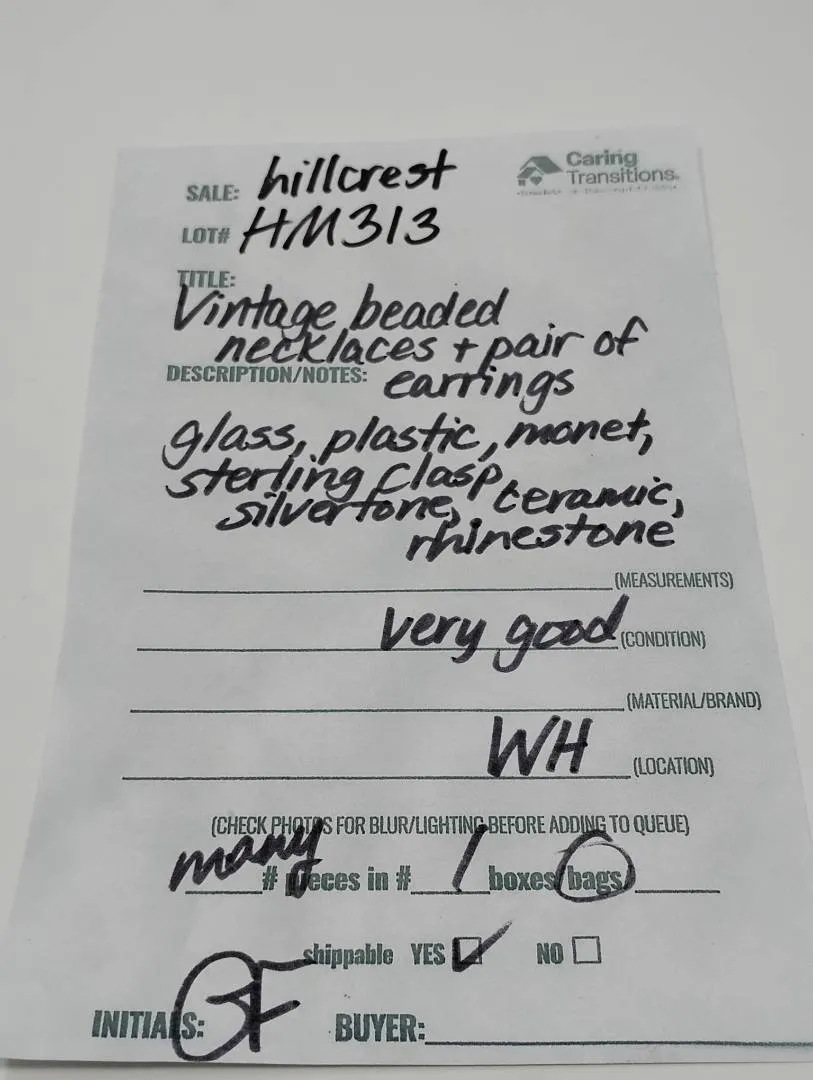 Caring
Transitions®
SALE: hillcrest
LOT# HM313
TITLE:
Vintage beaded
necklaces + pair of
DESCRIPTION/NOTES: earrings
glass, plastic, monet,
sterling clasp,
silvertone, ceramic,
rhinestone
(MEASUREMENTS)
very good (CONDITION)
(MATERIAL/BRAND)
WH (LOCATION)
(CHECK PHOTOS FOR BLUR/LIGHTING BEFORE ADDING TO QUEUE)
many # pieces in # 1 boxes/bags
shippable YES ✓ NO
INITIALS: GF BUYER: